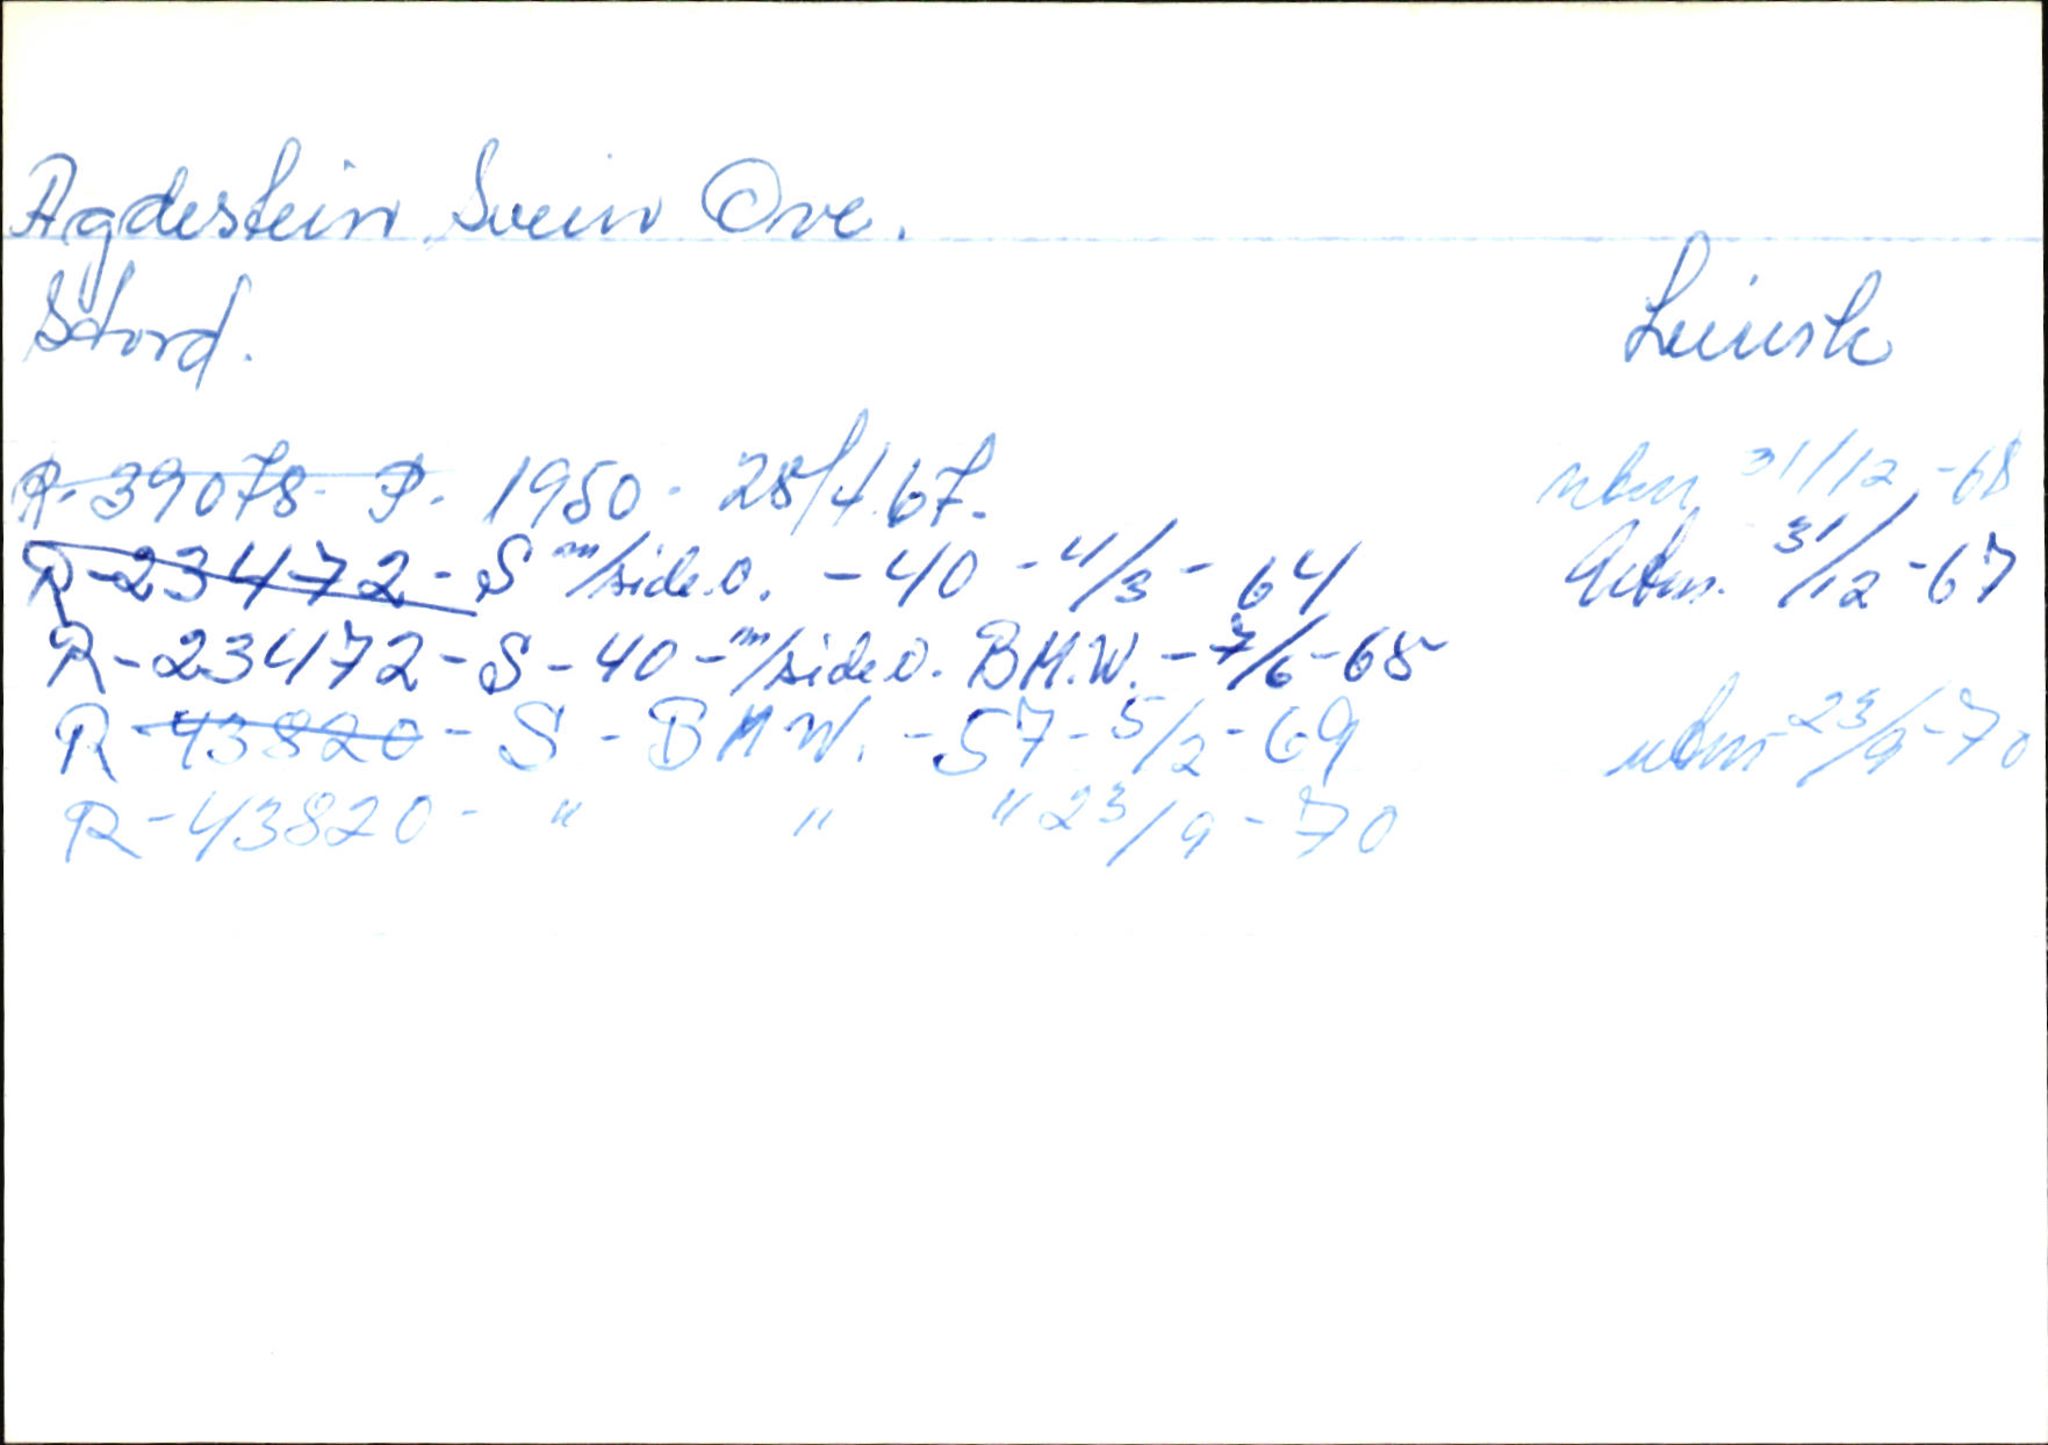 Agdestein Svein Ove.
Stord. Leirvik
R-39078- P. 1950 - 28/4 67. utm. 31/12 -68
R-23472 - S m/side.v. - 40 - 4/3 - 64 Utm. 31/12 -67
R-23472 - S - 40 - m/side v. B.M.W. - 7/6 - 65
R-43820 - S - B M W. - 57 - 5/2 - 69 utm 23/9 -70
R-43820 - " " " 23/9 - 70